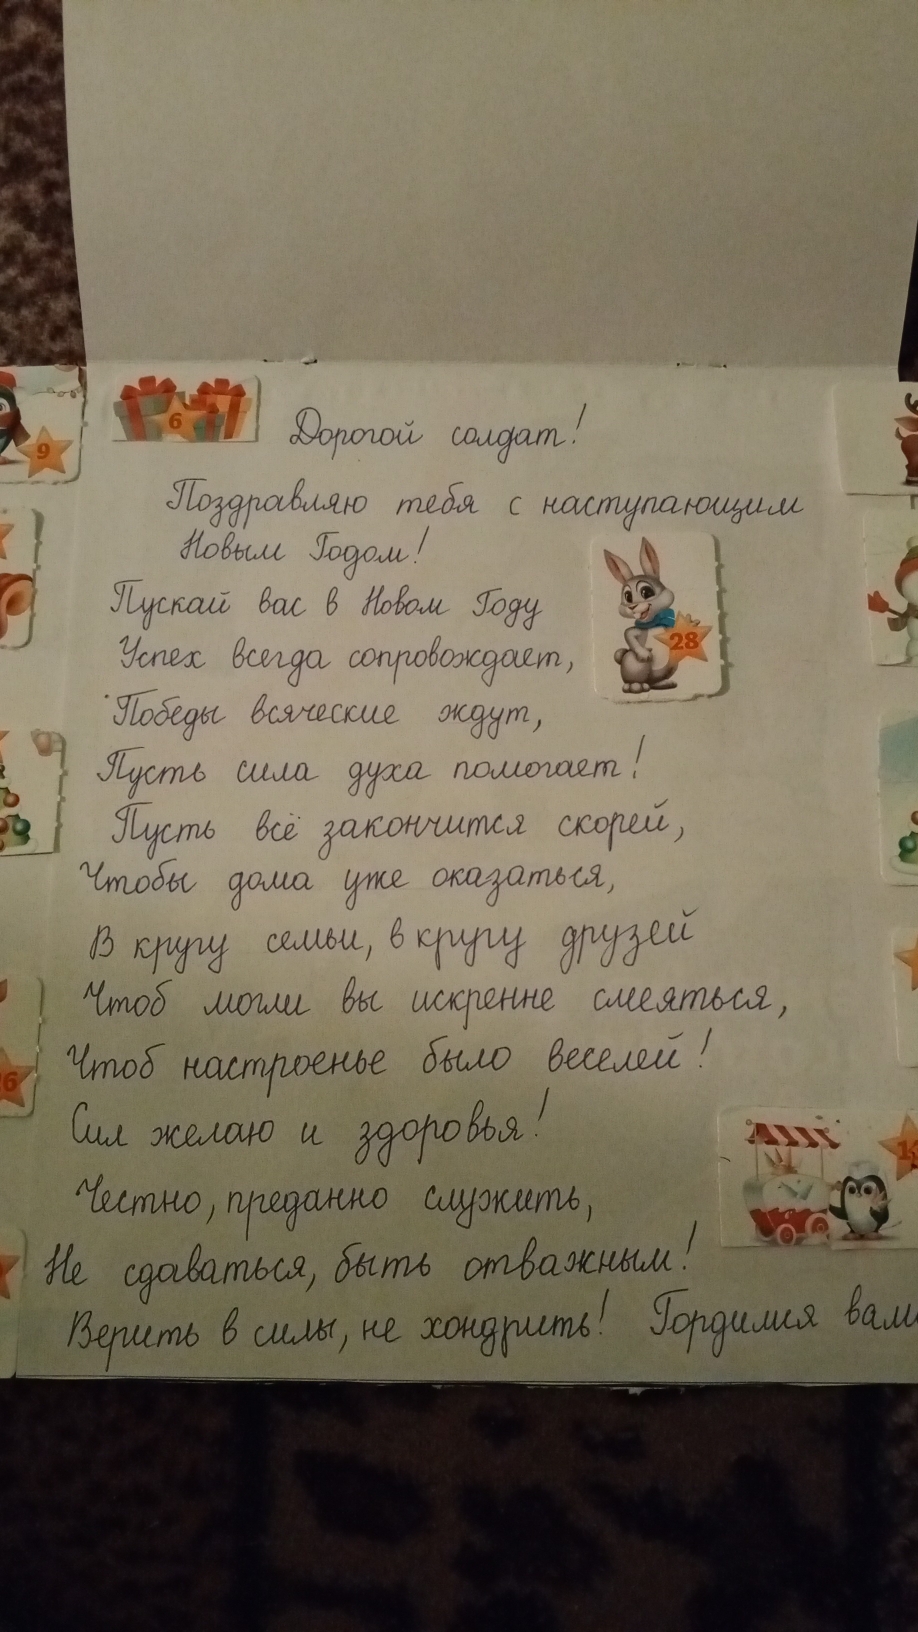 9
6
Дорогой солдат!
Поздравляю тебя с наступающим
Новым Годом!
Пускай вас в Новом Году
Успех всегда сопровождает,
28
Победы всяческие ждут,
Пусть сила духа помогает!
Пусть всё закончится скорей,
Чтобы дома уже оказаться,
В кругу семьи, в кругу друзей
Чтоб могли вы искренне смеяться,
Чтоб настроенье было веселей!
Сил желаю и здоровья!
Честно, преданно служить,
Не сдаваться, быть отважным!
Верить в силы, не хондрить! Гордимся